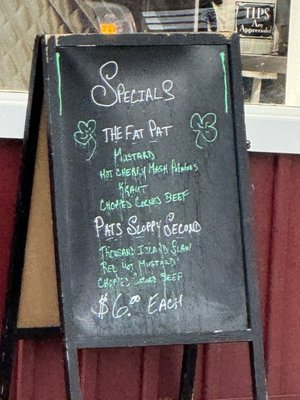 TIPS
Are
Appreciated
SPECIALS
THE FAT PAT
MUSTARD
HOT CHERRY MASH POTATOES
KRAUT
CHOPPED CORNED BEEF
PATS SLOPPY SECOND
THOUSAND ISLAND SLAW
RED HOT MUSTARD
CHOPPED CORNED BEEF
$6.00 EACH